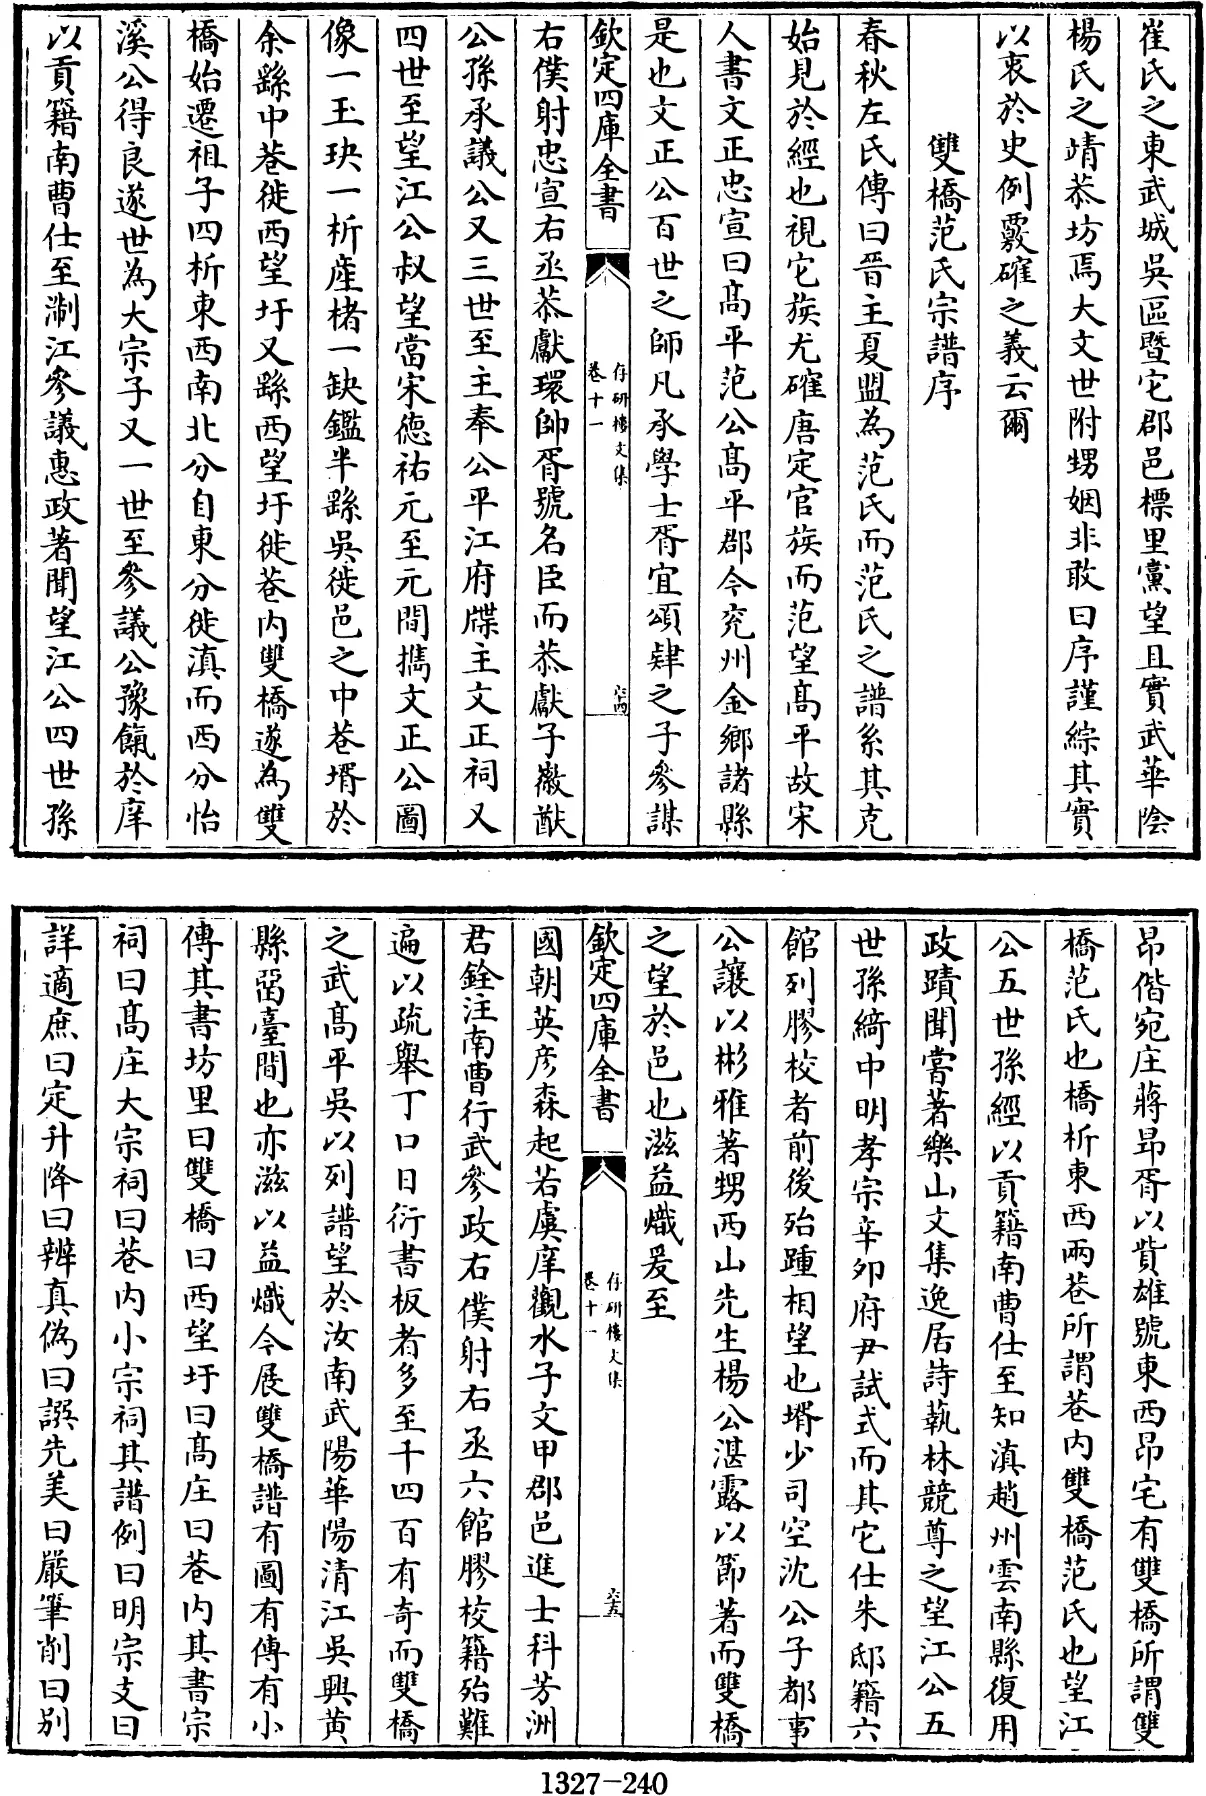 崔氏之東武城吳區暨它郡邑標里黨望且實武華陰
楊氏之靖恭坊焉大文世附甥姻非敢曰序謹綜其實
以衷於史例覈確之義云爾
雙橋范氏宗譜序
春秋左氏傳曰晉主夏盟為范氏而范氏之譜系其克
始見於經也視它族尤確唐定官族而范望髙平故宋
人書文正忠宣曰髙平范公髙平郡今兖州金鄉諸縣
是也文正公百世之師凡承學士胥宜頌肄之子參謀
欽定四庫全書
存研樓文集
卷十一
六十四
右僕射忠宣右丞恭獻環帥胥號名臣而恭獻子徽猷
公孫承議公又三世至主奉公平江府牒主文正祠又
四世至望江公叔望當宋德祐元至元間攜文正公圖
像一玉玦一析產楮一缺鑑半繇吳徙邑之中巷壻於
余繇中巷徙西望圩又繇西望圩徙巷内雙橋遂為雙
橋始遷祖子四析東西南北分自東分徙滇而西分怡
溪公得良遂世為大宗子又一世至參議公豫餼於庠
以貢籍南曹仕至浙江參議惠政著聞望江公四世孫
昂偕宛庄蔣昻胥以貲雄號東西昂宅有雙橋所謂雙
橋范氏也橋析東西兩巷所謂巷内雙橋范氏也望江
公五世孫經以貢籍南曹仕至知滇趙州雲南縣復用
政蹟聞嘗著樂山文集逸居詩蓺林競尊之望江公五
世孫綺中明孝宗辛夘府尹試式而其它仕朱邸籍六
館列膠校者前後殆踵相望也壻少司空沈公子都事
公讓以彬雅著甥西山先生楊公湛露以節著而雙橋
之望於邑也滋益熾爰至
欽定四庫全書
存研樓文集
卷十一
六十五
國朝英彦森起若虞庠觀水子文甲郡邑進士科芳洲
君銓注南曹行武參政右僕射右丞六館膠校籍殆難
遍以疏舉丁口日衍書板者多至千四百有奇而雙橋
之武髙平吳以列譜望於汝南武陽華陽清江吳興黄
縣噩臺間也亦滋以益熾今展雙橋譜有圖有傳有小
傳其書坊里曰雙橋曰西望圩曰髙庄曰巷内其書宗
祠曰髙庄大宗祠曰巷内小宗祠其譜例曰明宗支曰
詳適庶曰定升降曰辨真偽曰譔先美曰嚴筆削曰别
1327-240